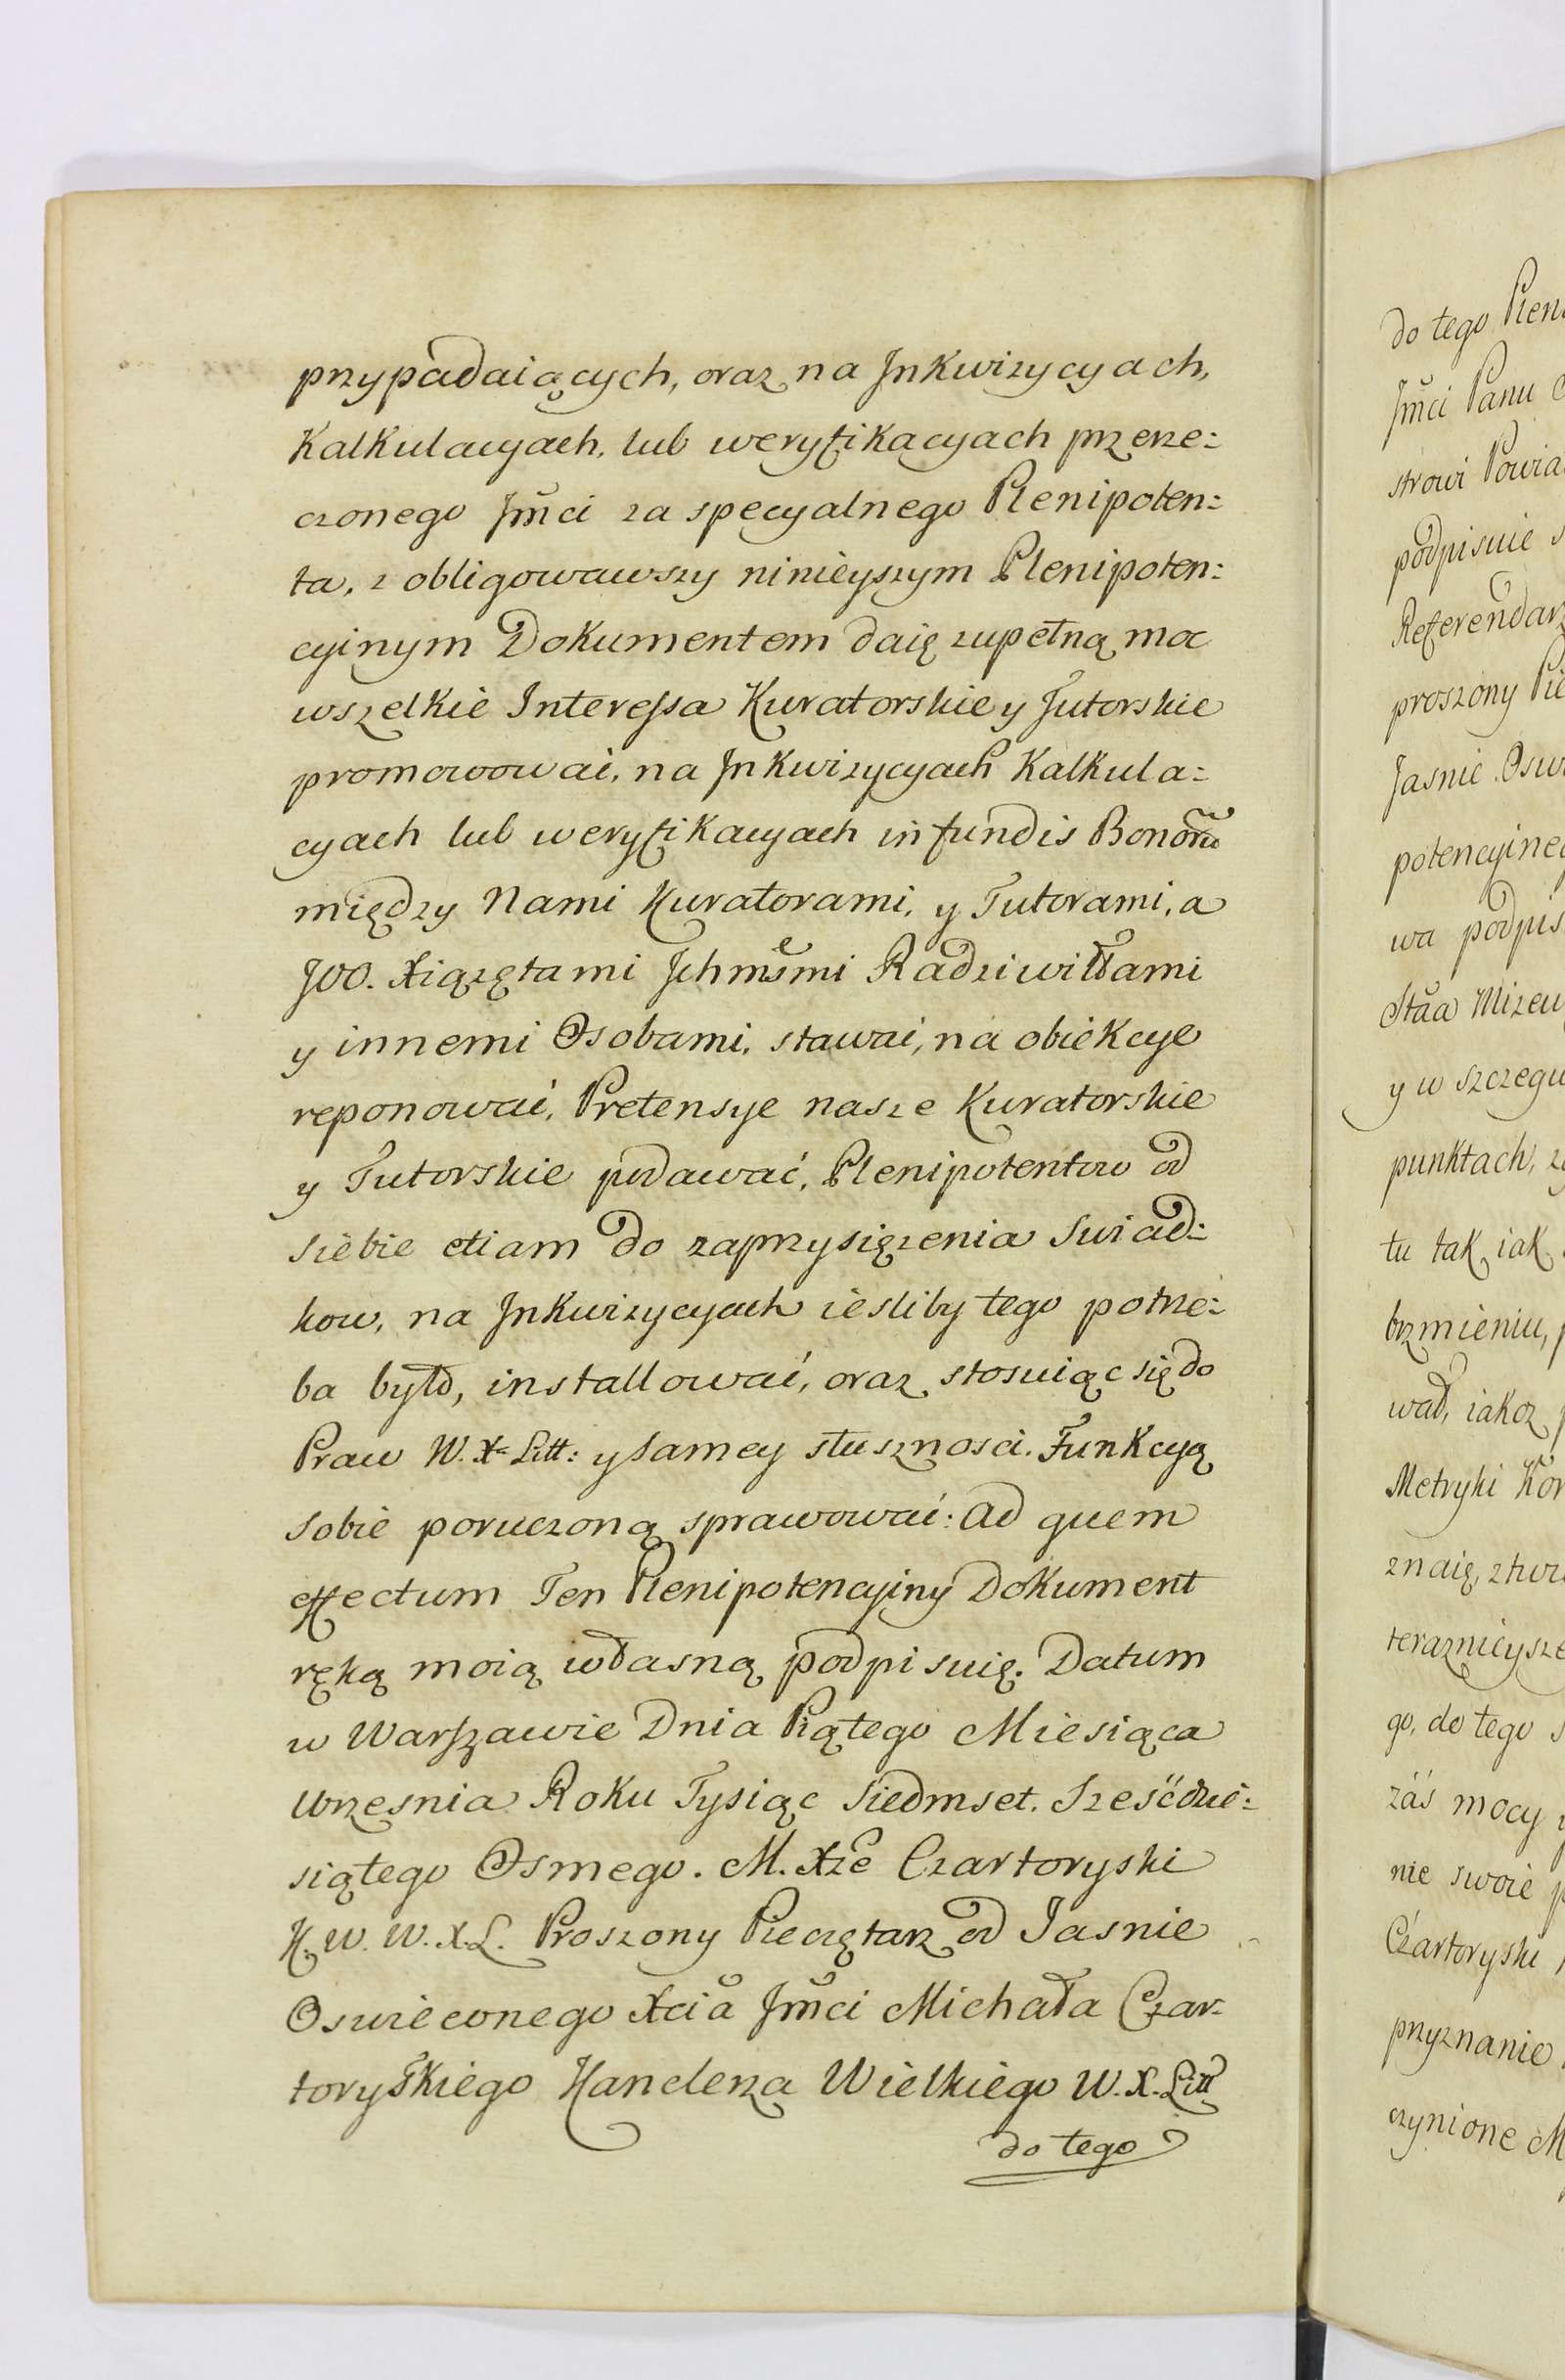 przypadaiących, oraz na Jnkwizycyach,
Kalkulacyach, lub weryfikacyach przerze:
czonego Jmci za specyalnego Plenipoten:
ta, zobligowawszy ninieyszym Plenipoten:
cyinym Dokumentem daię zupełną moc
wszelkie Interessa Kuratorskie y Tutorskie
promowować, na Jnkwizycyach Kalkula:
cyach lub weryfikacyach in fundis Bonorũ
między Nami Kuratorami, y Tutorami, a
JOO. Xiążętami Jchmśmi Radziwiłłami
y innemi Osobami, stawać, na obiekcye
reponować, Pretensye nasze Kuratorskie
y Tutorskie podawać, Plenipotentow od
siebie etiam do zaprzysiężenia Swiad:
kow, na Jnkwizycyach iesliby tego potrze:
ba było, installować, oraz stosuiąc się do
Praw W. X. Litt: y samey słuszności. Funkcyą
sobie poruczoną sprawować: Ad quem
effectum Ten Plenipotencyiny Dokument
ręką moią własną podpisuię. Datum
w Warszawie Dnia Piątego Miesiąca
Wrzesnia Roku Tysiąc Siedmset. Sześćdzie:
siątego Osmego. M. Xże Czartoryski
K. W. W. X. L. Proszony Pieczętarz od Jasnie
Oswieconego Xcia Jmci Michała Czar-
toryskiego Kanclerza Wielkiego W. X. Litt
do tego
do tego
Jmci Panu
strowi
podpisuie
proszony
Jasnie
wa
Stãa
y w
punktach,
tu tak iak
brzmieniu,
wał, iakoż
Metryki
znaię,
go, do tego
zaś mocy
nie swoie
Czartoryski
przyznanie
czynione